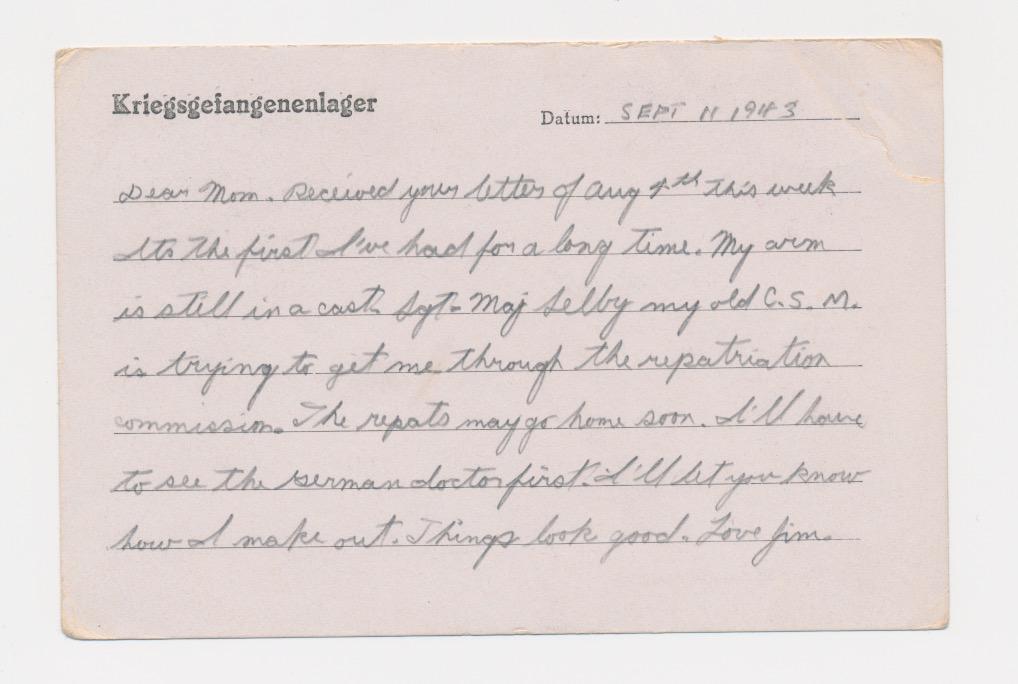 Kriegsgefangenenlager
Datum: SEPT 11 1943
Dear Mom. Received your letter of Aug 4th this week
Its the first I've had for a long time. My arm
is still in a cast. Sgt-Maj Selby my old C.S.M.
is trying to get me through the repatriation
commission. The repats may go home soon. I'll have
to see the German doctor first. I'll let you know
how I make out. Things look good. Love Jim.